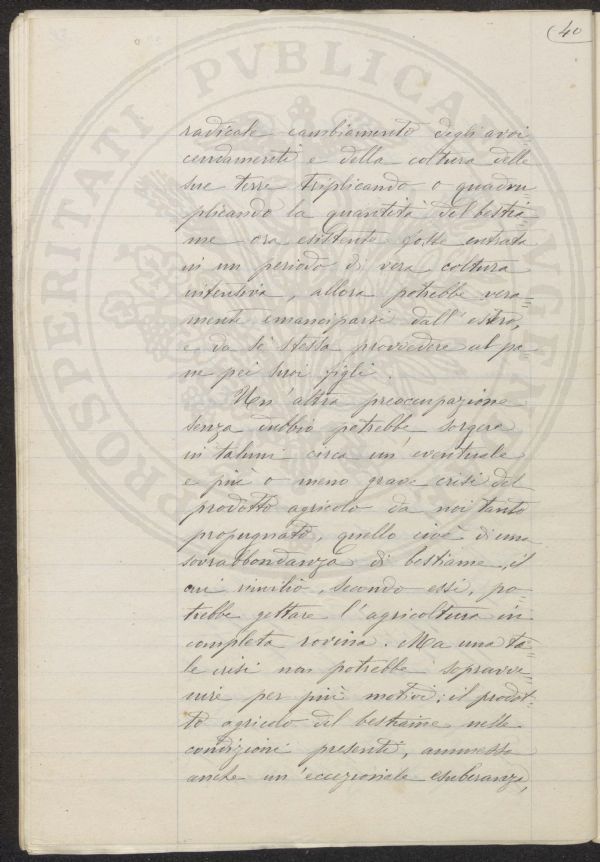 (40
radicale cambiamento degli avvi
cendamenti e della coltura delle
sue terre triplicando o quadru=
plicando la quantità del bestia=
me ora esistente fosse entrata
in un periodo di vera coltura
intensiva, allora potrebbe vera=
mente emanciparsi dall'estero,
e da sè stessa provvedere al pa=
ne pei suoi figli.
Un'altra preoccupazione
senza dubbio potrebbe sorgere
in taluni circa un'eventuale
e più o meno grave crisi del
prodotto agricolo da noi tanto
propugnato, quello cioè di una
sovrabbondanza di bestiame, il
cui rinvilio, secondo essi, po=
trebbe gettare l'agricoltura in
completa rovina. Ma una ta=
le crisi non potrebbe sopravve=
nire per più motivi; il prodot=
to agricolo del bestiame nelle
condizioni presenti, ammessa
anche un'eccezionale esuberanza,
PROSPERITATI PVBLICAE AVGENDAE